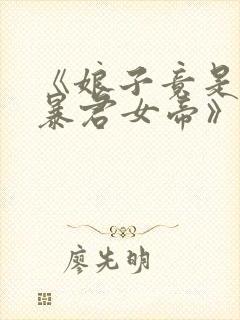 《娘子竟是
暴君女帝》
廖先明